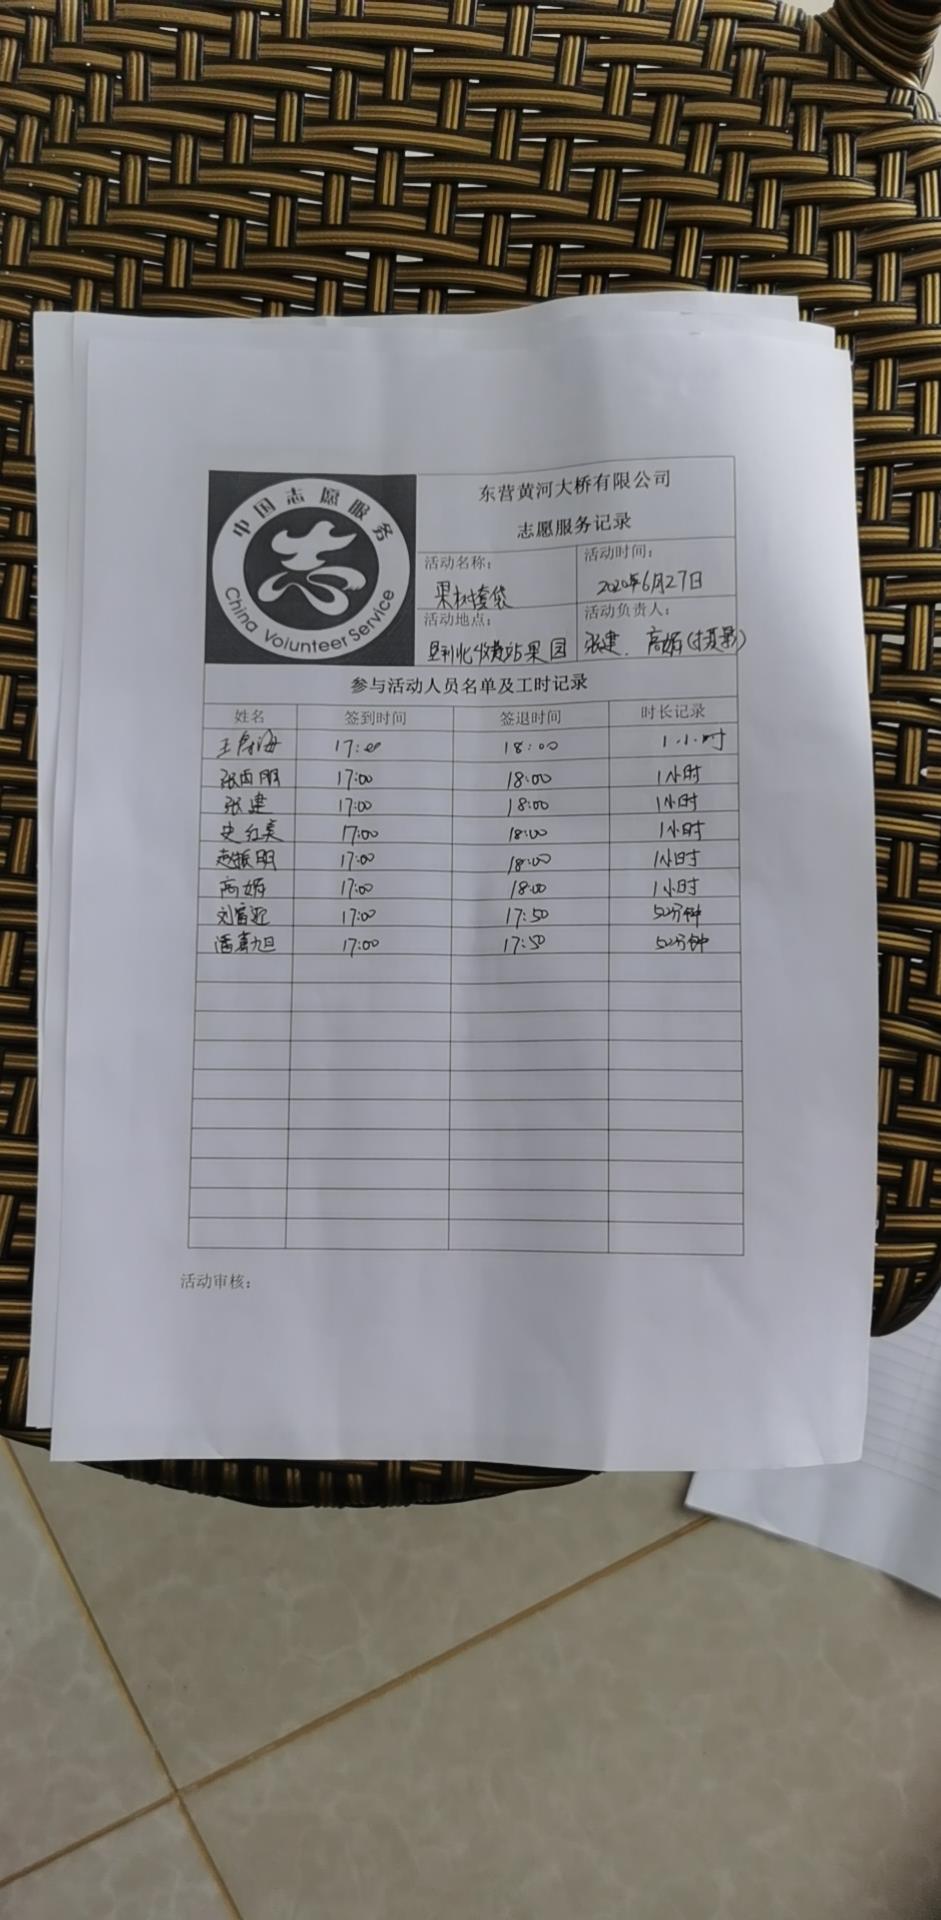 中国志愿服务
China Volunteer Service
东营黄河大桥有限公司
志愿服务记录
活动名称：
果树套袋
活动时间：
2020年6月27日
活动地点：
垦利北收费站果园
活动负责人：
张建、高娟(摄影)
参与活动人员名单及工时记录
姓名 签到时间 签退时间 时长记录
18:00 1小时
17:00 18:00 1小时
张建 17:00 18:00 1小时
史红美 17:00 18:00 1小时
赵振明 17:00 18:00 1小时
高娟 17:00 18:00 1小时
17:00 17:50 50分钟
17:00 17:50 50分钟
活动审核：